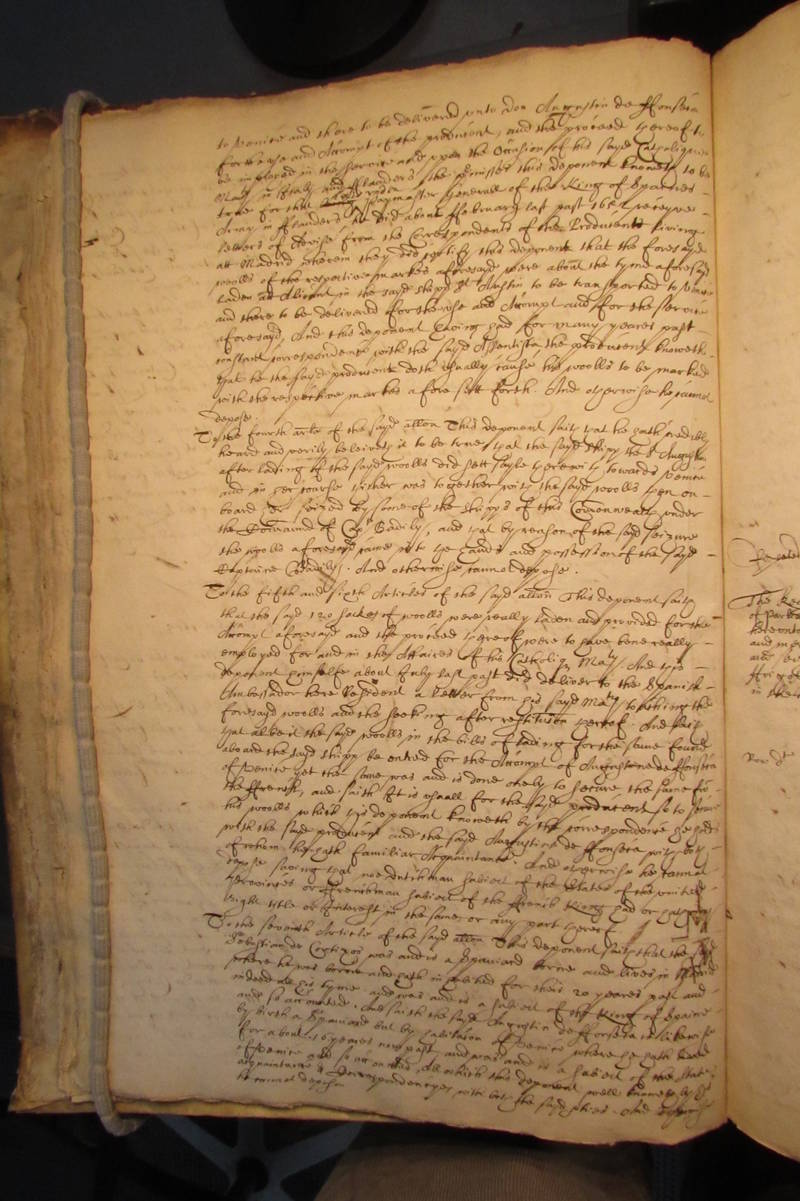 to Venice and there to be delivered unto don Augustin de ffonseca
for the use and Accompt of the producent, and the proceed thereof to
be imployed in the service and upon the Occasions of his sayd Catholique
Maty in Italy and fflanders the premisses this deponent knoweth to be
true for that Paymaster Generall of the King of Spaines
Army in fflanders, did about ffebruary last past 1652 receyve
letters of Advise from the Correspondents of the Producents living
att Madrid wherein they did certify this deponent that the foresayd
woolls of the respective markes aforesayd were about the tyme aforesayd
laden at Alicant in the sayd shipp St Austin to be transported to Venice
and there to be delivered for the use and Accompt and for the service
aforesayd, And this deponent having had for many yeares past
constant correspondence with the sayd Assentista, the producent, knoweth
that he the sayd producent doth usually cause his woolls to be marked
with the respective markes afore sett forth. And otherwise he cannot
depose.
To the fourth arle of the sayd allon This deponent saith that he hath credibly
heard and verily beleiveth it to be true that the sayd shipp the St Augustin
after lading of the sayd woolls did sett sayle therewith towards Venice
and in her course thither was together with the sayd woolls then on
board her seized by some of the shipps of this Commonwealth under
the Command of Capt Badily, and that by reason of the sayd seizure
the woolls aforesayd came into the hands and possession of the sayd
Captaine Badily. And otherwise cannot depose.
To the fifth and sixth Articles of the sayd allon This deponent saith
that the sayd 130 sackes of woolls were really laden and provided for the
Accompt aforesayd and the proceed thereof were to have bene really
employed for and in the Affaires of his Catholiq Maty And this
deponent himselfe about July last past did deliver to the Spanish
Ambassador here Resident a Letter from his sayd Maty touching the
foresayd woolls and the seeking after restitution thereof. And saith
that albeit the sayd woolls in the bills of lading for the same found
aboard the sayd shipp be entred for the Accompt of Augustine de ffonseca
of Venice yet the same was and is done onely to secure the same from
the ffrench, and saith it is usuall for the sayd producent so to secure
his woolls which this deponent knoweth by the correspondence he had
with the sayd producent and the sayd Augustin de ffonseca with both
of whom he hath familiar Acquaintance. And otherwise he cannot
depose saving that noe dutchman subiect of the States of the united
Provinces or ffrenchman subiect of the ffrench King had or hath any
right title or Interest in the same or any part thereof.
To the seventh Article of the sayd allon This deponent saith that the sayd
Sebastian de Cortizos was and is a Spaniard borne and lives in Madrid
where he was borne and hath inhabited for theis 20 yeares past and
indeed all his tyme and was and is a subiect of the King of Spaine
and so accounted. And saith the sayd Augustin de ffonseca is likewise
by birth a Spaniard but by habitation of Venice where he hath lived
for about 16 yeares now past and was and is a subiect of the State
of Venice and so accounted, All which this deponent well knoweth by his
acquaintance & Correspondencyes with both the sayd parties. And otherwise
he cannot depose.
The
of
in their